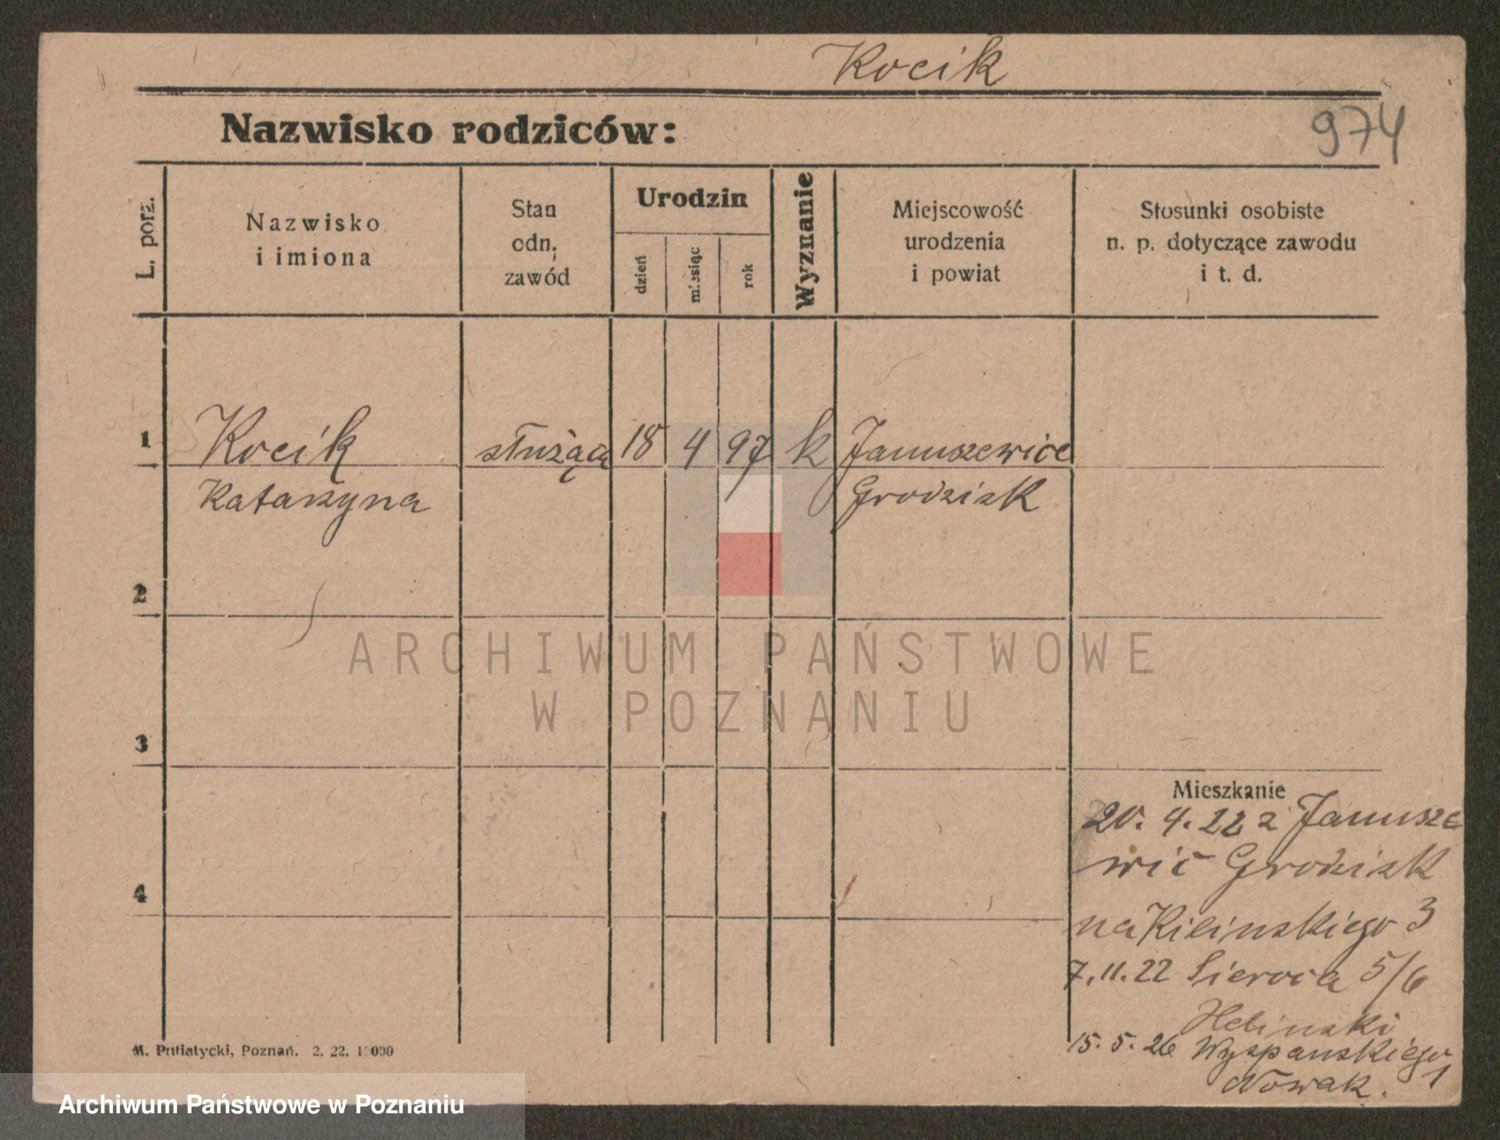 Kocik
Nazwisko rodziców:
974
L. porz.
Nazwisko
i imiona
Stan
odn.
zawód
Urodzin
dzień
miesiąc
rok
Wyznanie
Miejscowość
urodzenia
i powiat
Stosunki osobiste
n. p. dotyczące zawodu
i t. d.
1
Kocik służąca 18 4 97 k Januszewice
Katarzyna Grodzisk
2
ARCHIWUM PAŃSTWOWE
W POZNANIU
3
Mieszkanie
20. 4. 22 z Janusze
wic Grodzisk
4
na Kilinskiego 3
7. 11. 22 Sieroca 5/6
Helinski
15. 5. 26 Wyspanskiego 1
Nowak.
M. Putiatycki, Poznań. 2. 22.
Archiwum Państwowe w Poznaniu